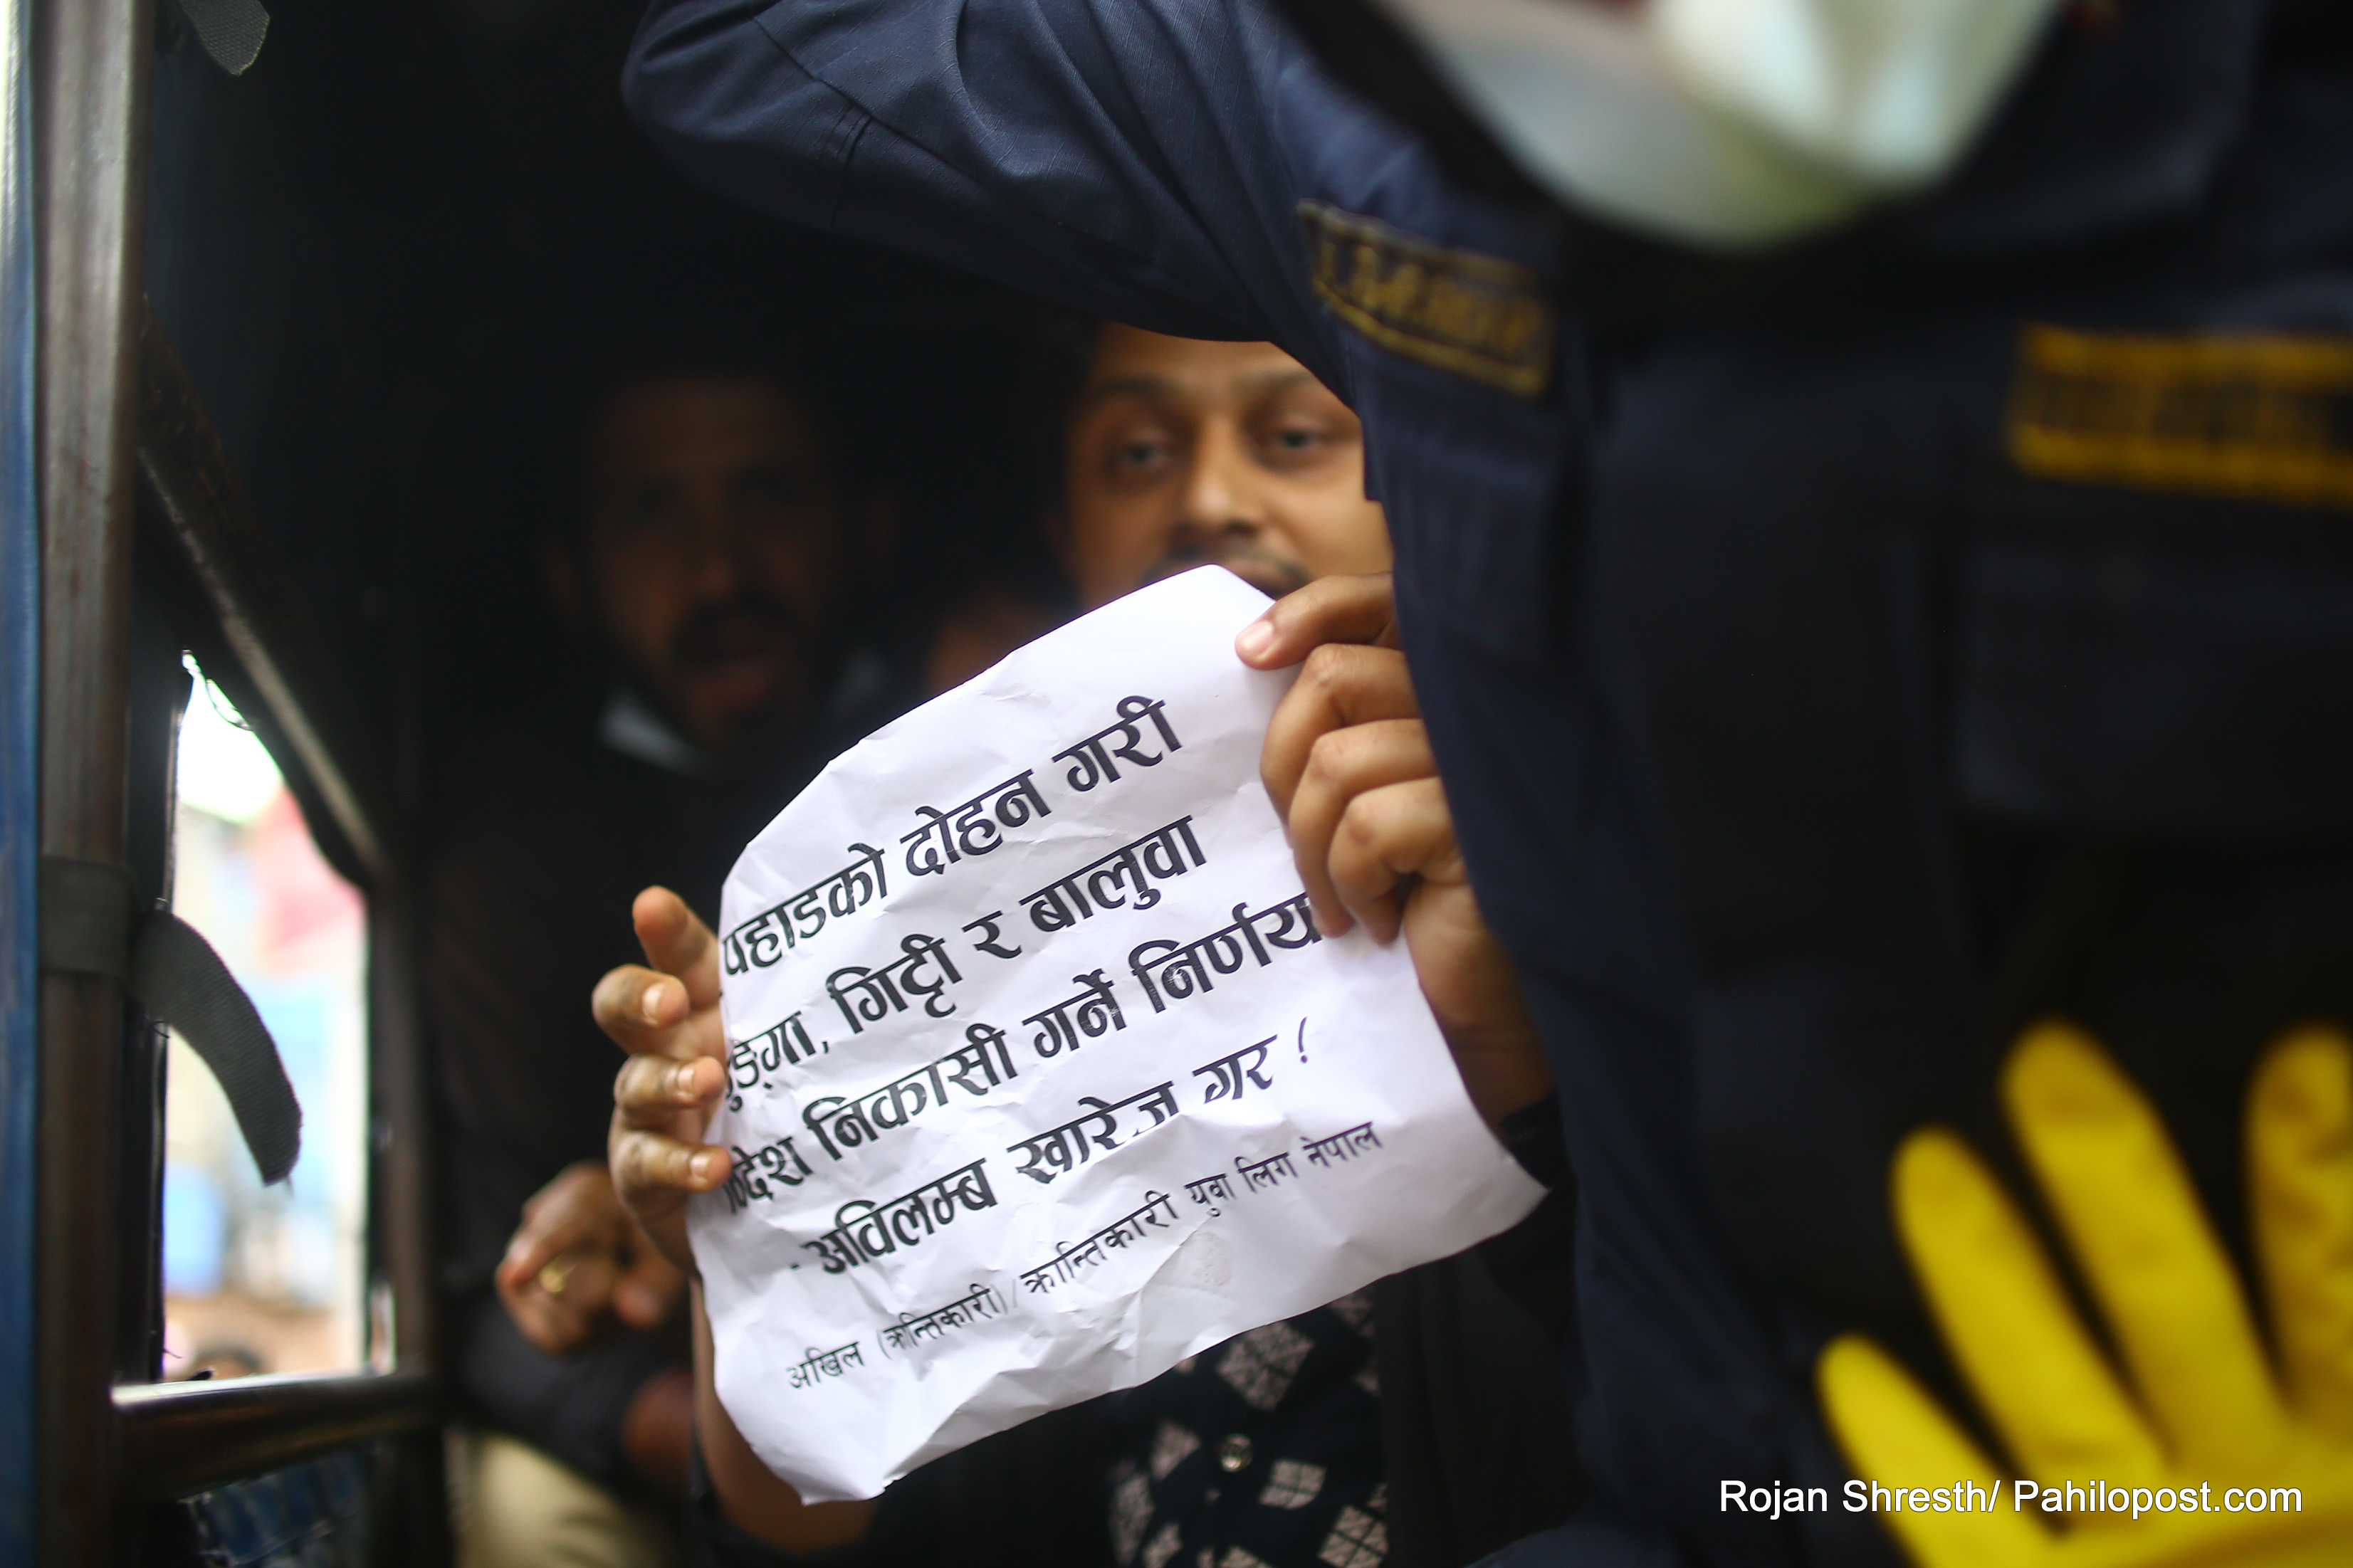 पहाडको दोहन गरी
गिट्टी र बालुवा
निकासी गर्ने निर्णय
अविलम्ब खारेज गर !
अखिल (क्रान्तिकारी)/ क्रान्तिकारी युवा लिग नेपाल
Rojan Shresth/ Pahilopost.com